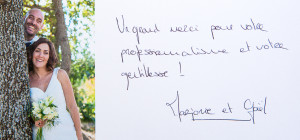 Un grand merci pour votre
professionnalisme et votre
gentillesse !
Marjorie et Gaël